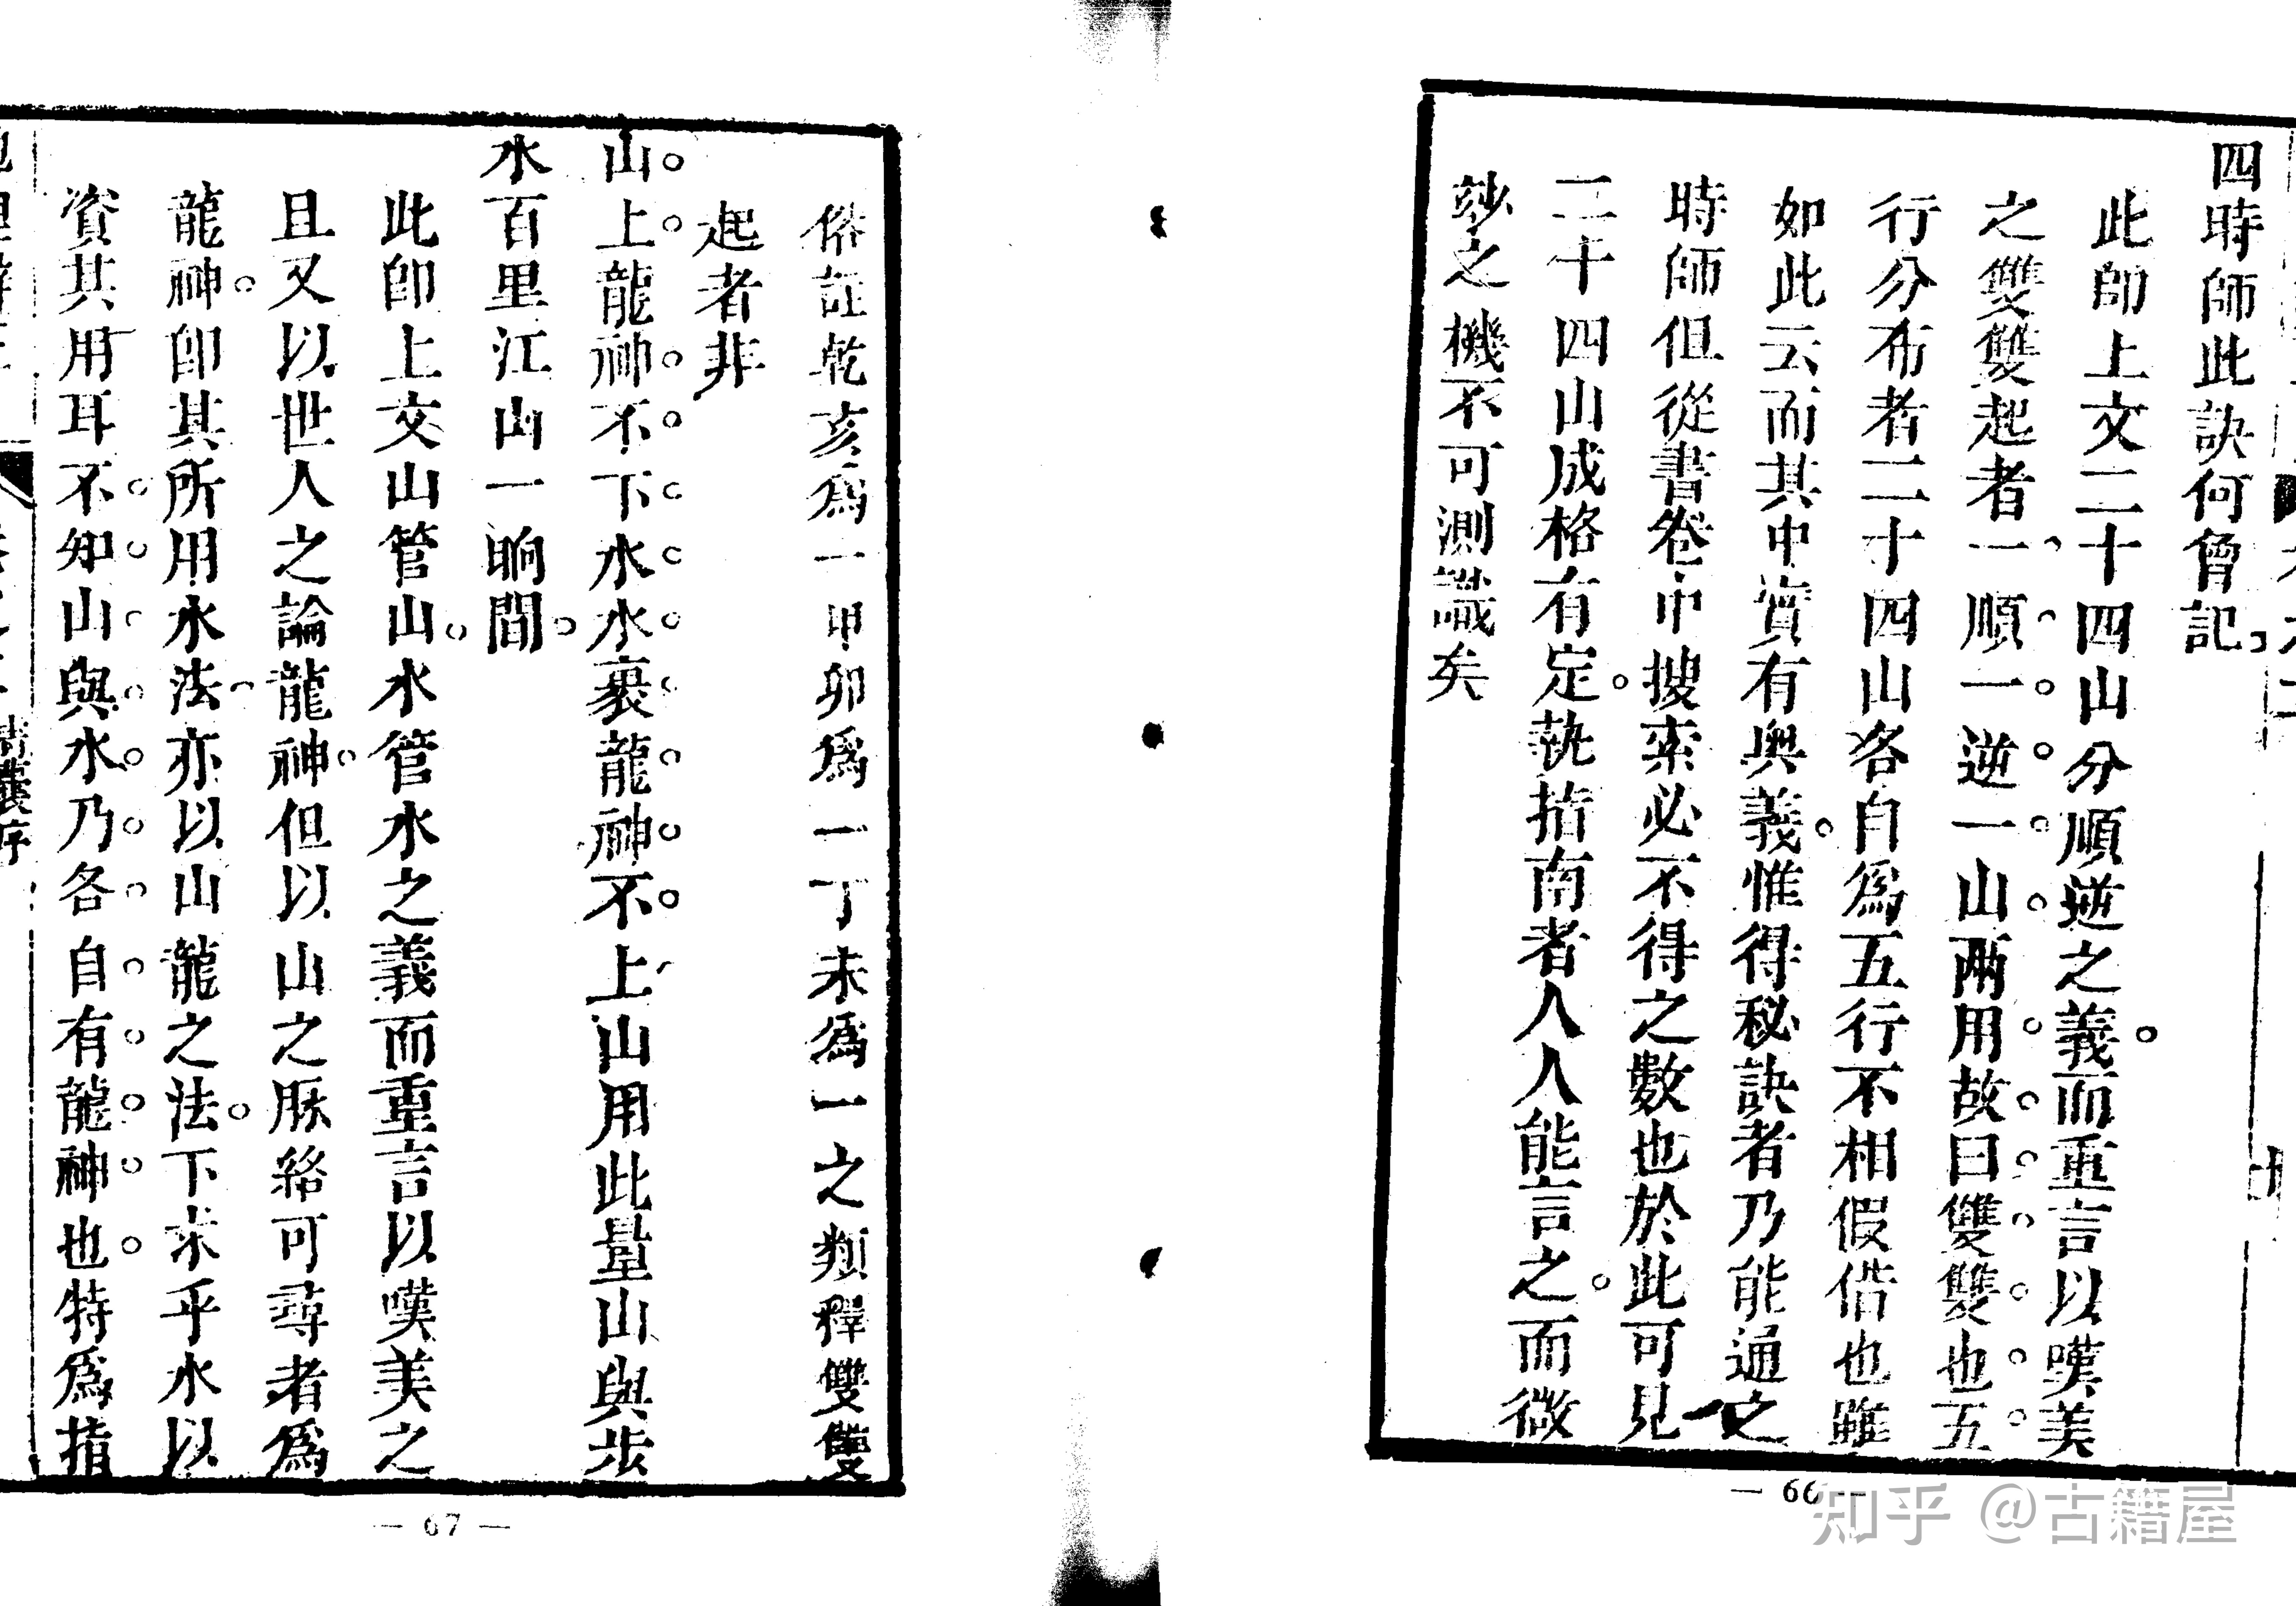 四時師此訣何曾記
此卽上文二十四山分順逆之義而重言以嘆美
之雙雙起者一順一逆一山兩用故曰雙雙也五
行分布者二十四山各自爲五行不相假借也雖
如此云而其中實有奥義惟得秘訣者乃能通之
時師但從書卷中搜索必不得之數也於此可見
二十四山成格有定執指南者人人能言之而微
玅之機不可測識矣
— 66 —
俗註乾亥爲一甲卯爲一丁未爲一之類釋雙雙
起者非
山上龍神不下水水裏龍神不上山用此量山與步
水百里江山一晌間
此卽上文山管山水管水之義而重言以嘆美之
且又以世人之論龍神但以山之脈絡可尋者爲
龍神卽其所用水法亦以山龍之法下求乎水以
資其用耳不知山與水乃各自有龍神也特爲指
— 67 —
知乎 @古籍屋